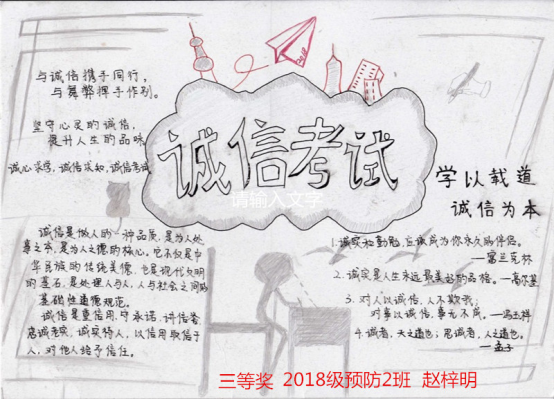 与诚信携手同行，
与舞弊挥手作别。
坚守心灵的诚信，
提升人生的品味
诚心求学，诚信求知，诚信考试
诚信考试
请输入文字
学以载道
诚信为本
诚信是做人的一种品质，是为人处
事之本，是为人之德的核心。它不仅是中
华民族的传统美德，也是现代文明
的基石，是处理人与人，人与社会之间的
基础性道德规范。
诚信是重信用、守承诺、讲信誉
忠诚老实，诚实待人，以信用取信于
人，对他人给予信任。
1.诚实和勤勉，应该成为你永久的伴侣。
—富兰克林
2.诚实是人生永远最美好的品格。—高尔基
3.对人以诚信，人不欺我；
对事以诚信，事无不成。—冯玉祥
4.诚者，天之道也；思诚者，人之道也。
—孟子
三等奖 2018级预防2班 赵梓明